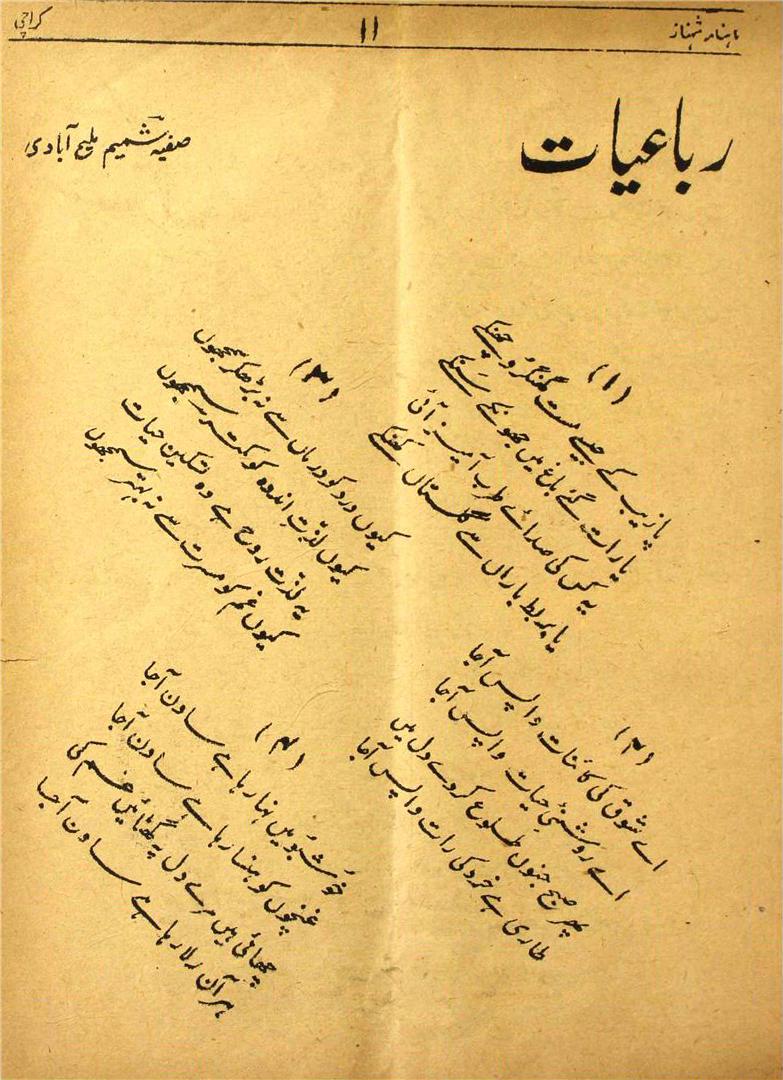 ماہنامہ شہناز
۱۱
کراچی
رباعیات
صفیہ شمیم ملیح آبادی
(۱)
پازیب کے جیسے مست گھنگرو چھنکے
یا رات گئے باغ میں جھونکے سنکے
یہ کس کی صدائے طرب آمیز آئی
یا بربط باراں سے گلستاں کھنکے
(۲)
اے شوق کی کائنات، واپس آجا
اے روشنئِ حیات واپس آجا
پھر صبح جنوں طلوع کر دے دل میں
طاری ہے خرد کی رات واپس آجا
(۳)
کیوں درد کو درماں سے نہ بڑھ کر سمجھوں
کیوں لذتِ اندوہ کو کمتر سمجھوں
یہ لذت روح ہے وہ تسکین حیات
کیوں غم کو مسرت سے نہ بہتر سمجھوں
(۴)
خوشبو میں نہا رہا ہے ساون آجا
غنچوں کو ہنسا رہا ہے ساون آجا
چھائی ہیں مرے دل پہ گھٹائیں غم کی
ہر آن رلا رہا ہے ساون آجا